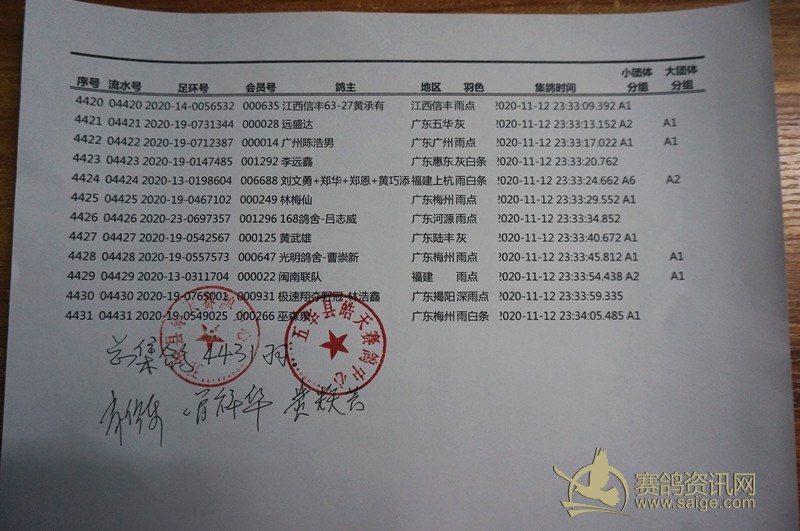 序号 流水号 足环号 会员号 鸽主 地区 羽色 集鸽时间 小团体分组 大团体分组
4420 04420 2020-14-0056532 000635 江西信丰63-27黄承有 江西信丰 雨点 2020-11-12 23:33:09.392 A1
4421 04421 2020-19-0731344 000028 远盛达 广东五华 灰 2020-11-12 23:33:13.152 A2 A1
4422 04422 2020-19-0712387 000014 广州陈浩男 广东广州 雨点 2020-11-12 23:33:17.022 A1 A1
4423 04423 2020-19-0147485 001292 李远鑫 广东惠东 灰白条 2020-11-12 23:33:20.762
4424 04424 2020-13-0198604 006688 刘文勇+郑华+郑恩+黄巧添 福建上杭 雨白条 2020-11-12 23:33:24.662 A6 A2
4425 04425 2020-19-0467102 000249 林梅仙 广东梅州 雨点 2020-11-12 23:33:29.552 A1
4426 04426 2020-23-0697357 001296 168鸽舍-吕志威 广东河源 雨点 2020-11-12 23:33:34.852
4427 04427 2020-19-0542567 000125 黄武雄 广东陆丰 灰 2020-11-12 23:33:40.672 A1
4428 04428 2020-19-0557573 000647 光明鸽舍-曹崇新 广东梅州 雨点 2020-11-12 23:33:45.812 A1 A1
4429 04429 2020-13-0311704 000022 闽南联队 福建 雨点 2020-11-12 23:33:54.438 A2 A1
4430 04430 2020-19-0765001 000931 极速翔夺野冠-林浩鑫 广东揭阳 深雨点 2020-11-12 23:33:59.335
4431 04431 2020-19-0549025 000266 巫森泉 广东梅州 雨白条 2020-11-12 23:34:05.485 A1
五华县皓天赛鸽中心
共集鸽 4431 羽
赛鸽资讯网
www.saige.com